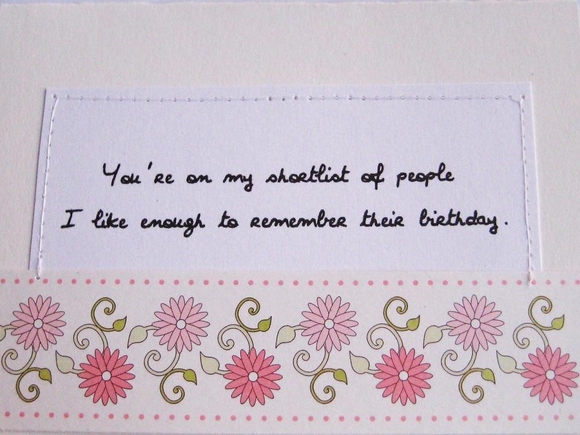 You're on my shortlist of people
I like enough to remember their birthday.